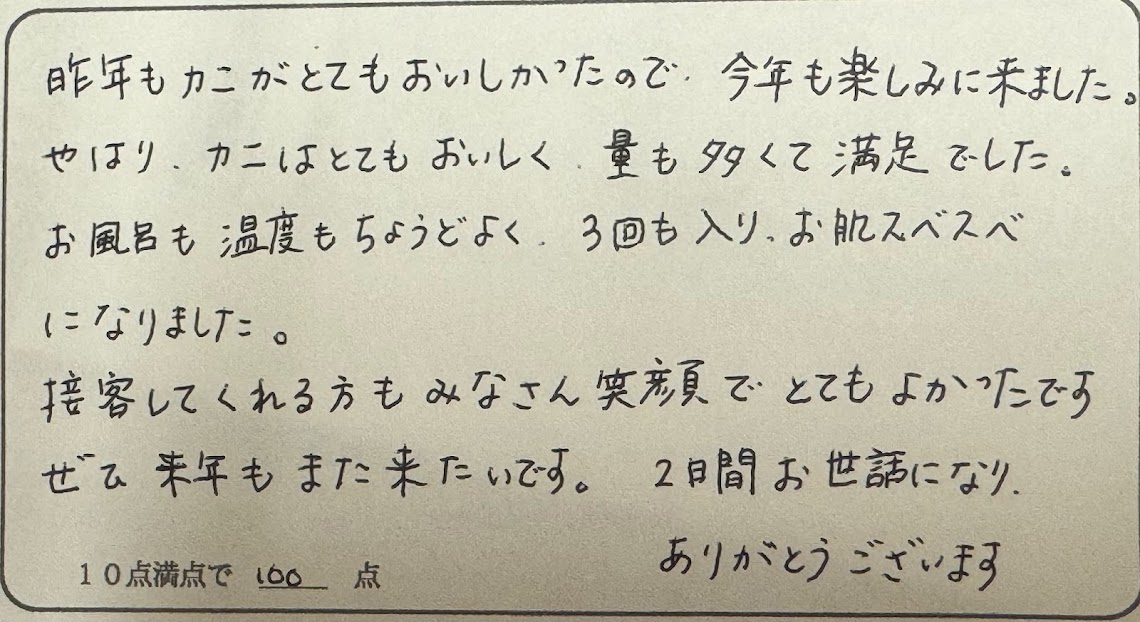 昨年もカニがとてもおいしかったので、今年も楽しみに来ました。
やはり、カニはとてもおいしく、量も多くて満足でした。
お風呂も温度もちょうどよく、3回も入り、お肌スベスベ
になりました。
接客してくれる方もみなさん笑顔でとてもよかったです
ぜひ来年もまた来たいです。 2日間お世話になり、
ありがとうございます
10点満点で 100 点